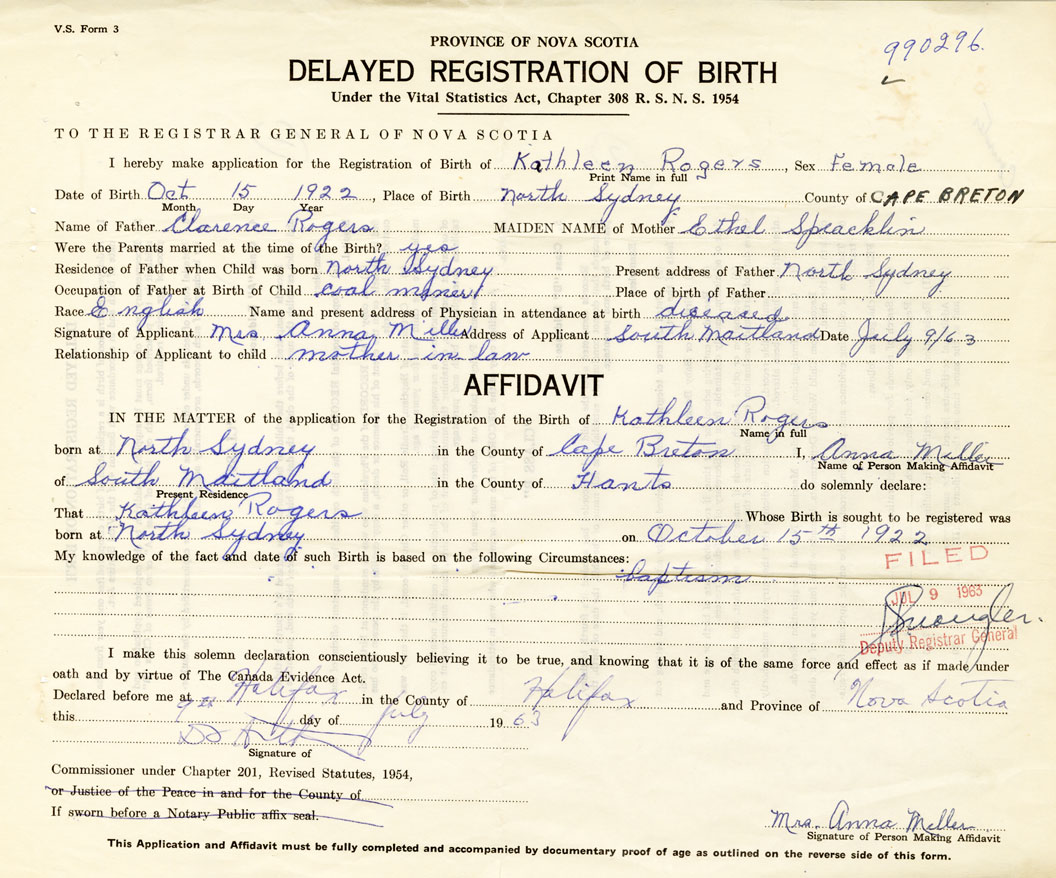 V.S. Form 3
990296.
PROVINCE OF NOVA SCOTIA
DELAYED REGISTRATION OF BIRTH
Under the Vital Statistics Act, Chapter 308 R. S. N. S. 1954
TO THE REGISTRAR GENERAL OF NOVA SCOTIA
I hereby make application for the Registration of Birth of Kathleen Rogers, Sex Female
Print Name in full
Date of Birth Oct 15 1922, Place of Birth North Sydney County of CAPE BRETON
Month Day Year
Name of Father Clarence Rogers MAIDEN NAME of Mother Ethel Spracklin
Were the Parents married at the time of the Birth? yes
Residence of Father when Child was born North Sydney Present address of Father North Sydney
Occupation of Father at Birth of Child coal miner Place of birth of Father
Race English Name and present address of Physician in attendance at birth diseased
Signature of Applicant Mrs. Anna Miller Address of Applicant South Maitland Date July 9/63
Relationship of Applicant to child mother in law
AFFIDAVIT
IN THE MATTER of the application for the Registration of the Birth of Kathleen Rogers
Name in full
born at North Sydney in the County of Cape Breton I, Anna Miller
Name of Person Making Affidavit
of South Maitland in the County of Hants do solemnly declare:
Present Residence
That Kathleen Rogers Whose Birth is sought to be registered was
born at North Sydney on October 15th 1922
My knowledge of the fact and date of such Birth is based on the following Circumstances:
FILED
baptism
JUL 9 1963
Deputy Registrar General
I make this solemn declaration conscientiously believing it to be true, and knowing that it is of the same force and effect as if made under
oath and by virtue of The Canada Evidence Act.
Declared before me at Halifax in the County of Halifax and Province of Nova Scotia
this 9th day of July 1963
Signature of
Commissioner under Chapter 201, Revised Statutes, 1954,
or Justice of the Peace in and for the County of
If sworn before a Notary Public affix seal.
Mrs. Anna Miller
Signature of Person Making Affidavit
This Application and Affidavit must be fully completed and accompanied by documentary proof of age as outlined on the reverse side of this form.